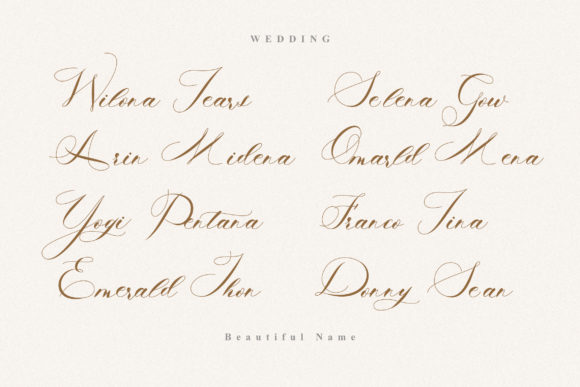 WEDDING
Wilona Tears
Selena Gow
Arin Midena
Omarld Mena
Yogi Pentana
Franco Tina
Emerald Thon
Donny Sean
Beautiful Name